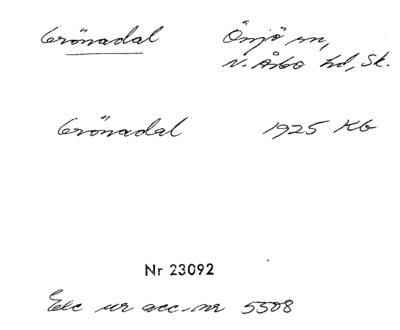 Grönadal Önnjö sn,
N. Åsbo hd, Sk.
Grönadal 1925 Kb
Nr 23092
Exc ur acc.nr 5508